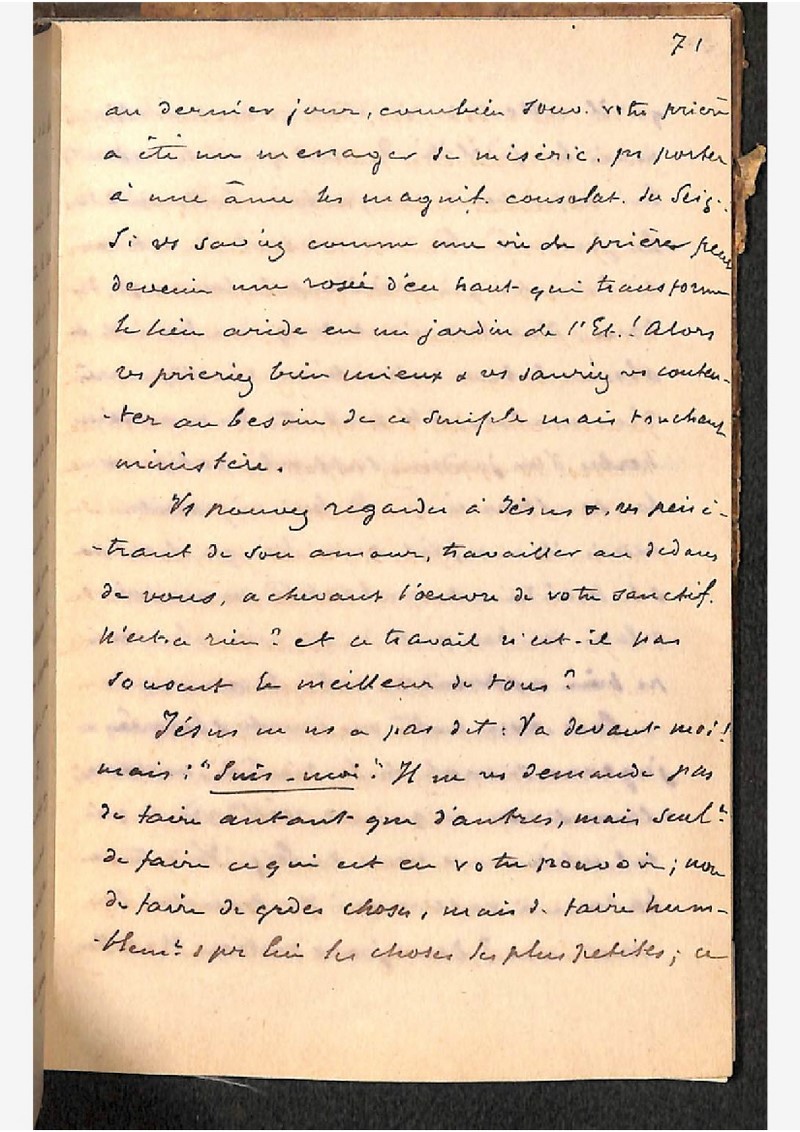 71
au dernier jour, combien souv. votre prière
a été un messager de miséric. pr porter
à une âme les magnif. consolat. du Seig.
Si vs saviez comme une vie de prières peut
devenir une rosée d'en haut qui transforme
le lieu aride en un jardin de l'Et.! Alors
vs prieriez bien mieux & vs sauriez vs conten-
-ter au besoin de ce simple mais touchant
ministère.
Vs pouvez regarder à Jésus &, vs péné-
-trant de son amour, travailler au dedans
de vous, achevant l'oeuvre de votre sanctif.
N'est-ce rien? et ce travail n'est-il pas
souvent le meilleur de tous?
Jésus ne ns a pas dit: Va devant moi!
mais: "Suis-moi". Il ne vs demande pas
de faire autant que d'autres, mais seult
de faire ce qui est en votre pouvoir; non
de faire de grdes choses, mais de faire hum-
-blemt & pr lui les choses les plus petites; ce